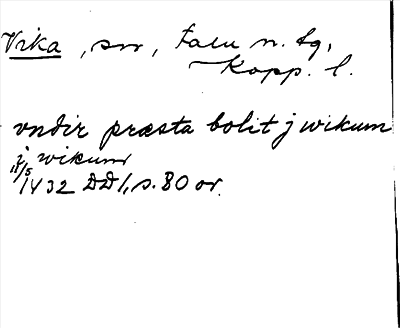 Vika, sn, Falu n. tg,
Kopp. l.
vndir præsta bolit j wikum
i wikum
11/5 1432 DD1, s. 80 or.